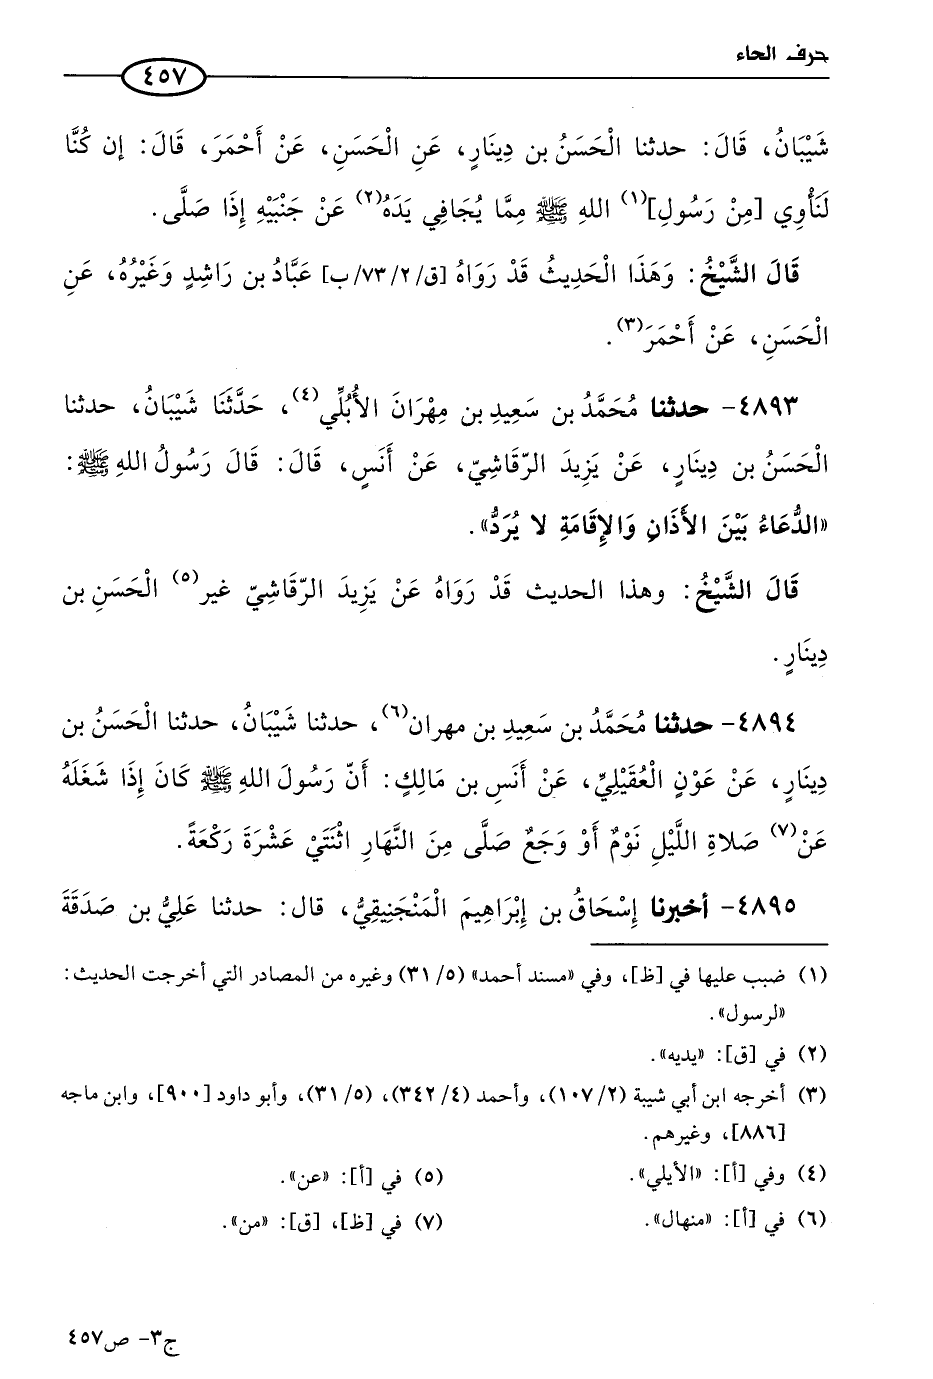 حرف الحاء
٤٥٧
شَيْبَانُ، قَالَ: حدثنا الْحَسَنُ بن دِينَارٍ، عَنِ الْحَسَنِ، عَنْ أَحْمَرَ، قَالَ: إن كُنَّا
لَنَأْوِي [مِنْ رَسُولِ](١) اللهِ ﷺ مِمَّا يُجَافِي يَدَهُ(٢) عَنْ جَنْبَيْهِ إِذَا صَلَّى.
قَالَ الشَّيْخُ: وَهَذَا الْحَدِيثُ قَدْ رَوَاهُ [ق/٧٣/٢/ب] عَبَّادُ بن رَاشِدٍ وَغَيْرُهُ، عَنِ
الْحَسَنِ، عَنْ أَحْمَرَ(٣).
٤٨٩٣- حدثنا مُحَمَّدُ بن سَعِيدِ بن مِهْرَانَ الأُبُلِّي(٤)، حَدَّثَنَا شَيْبَانُ، حدثنا
الْحَسَنُ بن دِينَارٍ، عَنْ يَزِيدَ الرّقَاشِيّ، عَنْ أَنَسٍ، قَالَ: قَالَ رَسُولُ اللهِ ﷺ:
«الدُّعَاءُ بَيْنَ الأَذَانِ وَالإِقَامَةِ لا يُرَدُّ».
قَالَ الشَّيْخُ: وهذا الحديث قَدْ رَوَاهُ عَنْ يَزِيدَ الرّقَاشِيّ غير(٥) الْحَسَنِ بن
دِينَارٍ.
٤٨٩٤- حدثنا مُحَمَّدُ بن سَعِيدِ بن مهران(٦)، حدثنا شَيْبَانُ، حدثنا الْحَسَنُ بن
دِينَارٍ، عَنْ عَوْنٍ الْعُقَيْلِيِّ، عَنْ أَنَسِ بن مَالِكٍ: أَنّ رَسُولَ اللهِ ﷺ كَانَ إِذَا شَغَلَهُ
عَنْ(٧) صَلاةِ اللَّيْلِ نَوْمٌ أَوْ وَجَعٌ صَلَّى مِنَ النَّهَارِ اثْنَتَيْ عَشْرَةَ رَكْعَةً.
٤٨٩٥- أخبرنا إِسْحَاقُ بن إِبْرَاهِيمَ الْمَنْجَنِيقِيُّ، قال: حدثنا عَلِيُّ بن صَدَقَةَ
(١) ضبب عليها في [ظ]، وفي «مسند أحمد» (٥/ ٣١) وغيره من المصادر التي أخرجت الحديث:
«لرسول».
(٢) في [ق]: «يديه».
(٣) أخرجه ابن أبي شيبة (١٠٧/٢)، وأحمد (٤/ ٣٤٢)، (٥/ ٣١)، وأبو داود [٩٠٠]، وابن ماجه
[٨٨٦]، وغيرهم.
(٤) وفي [أ]: «الأيلي». (٥) في [أ]: «عن».
(٦) في [أ]: «منهال». (٧) في [ظ]، [ق]: «من».
ج٣- ص٤٥٧